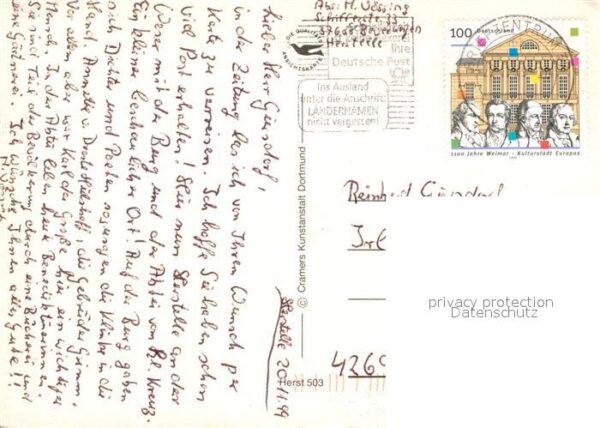 Abs: M. Nessing
Schifferstr. 33
37688 Beverungen
Herstelle
Ihre
Deutsche Post
Ins Ausland
unter die Anschrift:
LÄNDERNAMEN
nicht vergessen!
100 Deutschland
1100 Jahre Weimar - Kulturstadt Europas
Lieber Herr Gündorf!
in der Zeitung las ich von Ihrem Wunsch per
Karte zu verreisen. Ich hoffe Sie haben schon
viel Post erhalten! Hier nun Herstelle an der
Weser mit der Burg und der Abtei vom hl. Kreuz.
Ein kleiner beschaulicher Ort! Auf der Burg gaben
sich Dichter und Poeten sozusagen die Klinke in die
Hand. Annette v. Droste Hülshoff, die Gebrüder Grimm.
Vor allem aber war Karl der Große hier ein wichtiger
Mensch. In der Abtei leben heute Benediktinerinnen.
Sie sind Teil der Bevölkerung durch eine Bücherei und
eine Gärtnerei. Ich wünsche Ihnen alles Gute!!
Herstelle 20.11.99
© Cramers Kunstanstalt Dortmund
Herst 503
Reinhard Gündorf
4269
privacy protection
Datenschutz